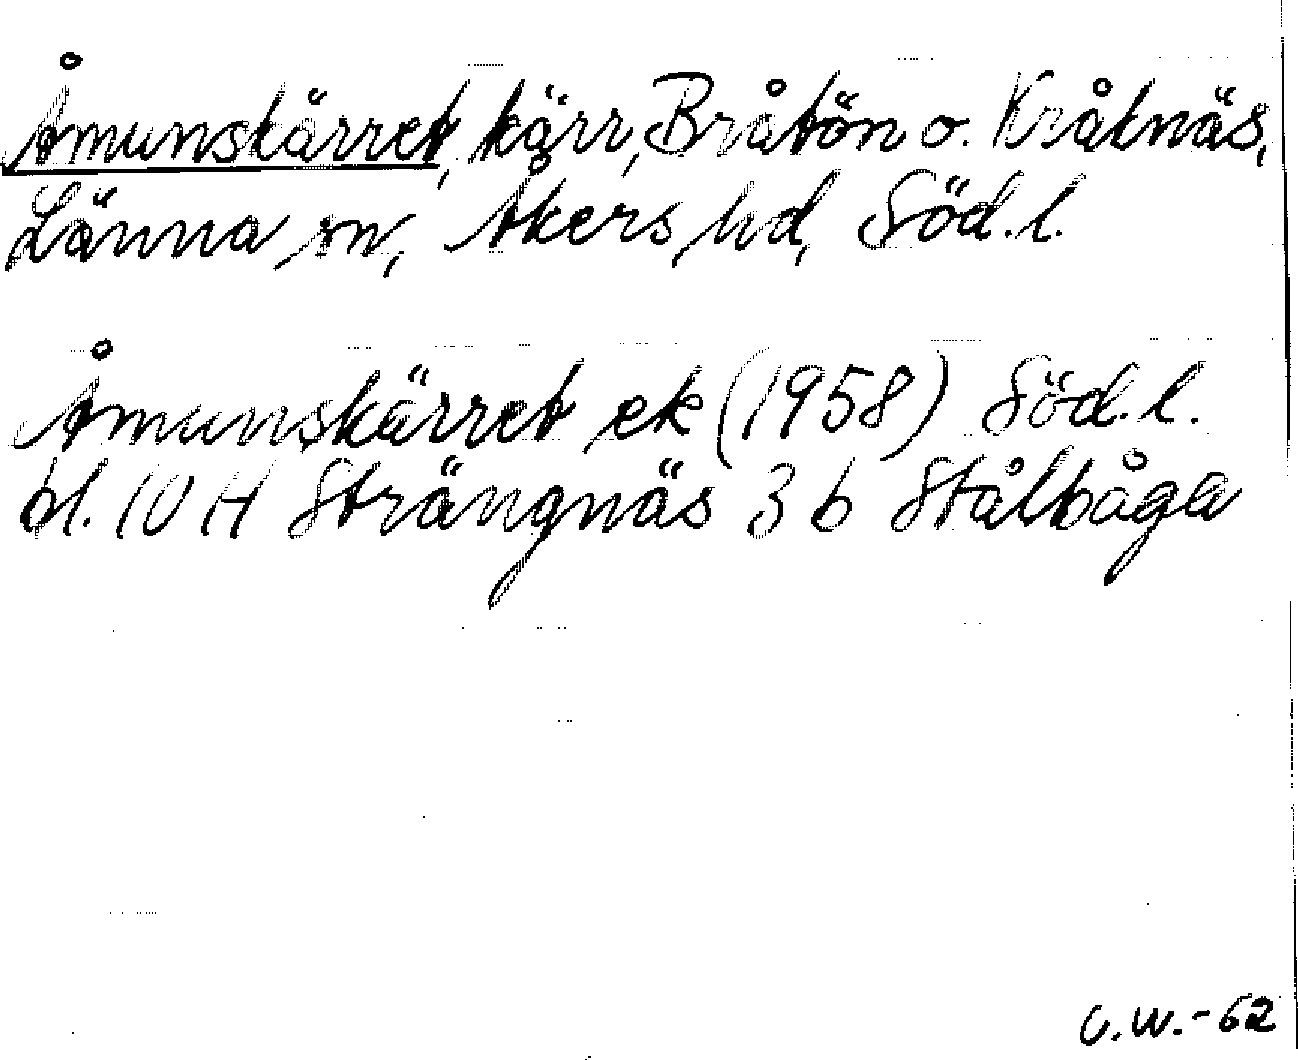 Åmunskärret, kärr, Bråtön o. Kråknäs,
Länna sn, Åkers hd, Söd.l.
Åmunskärret ek (1958) Söd.l.
bl. 10 H Strängnäs 3 b Stålbåga
U.W.-62